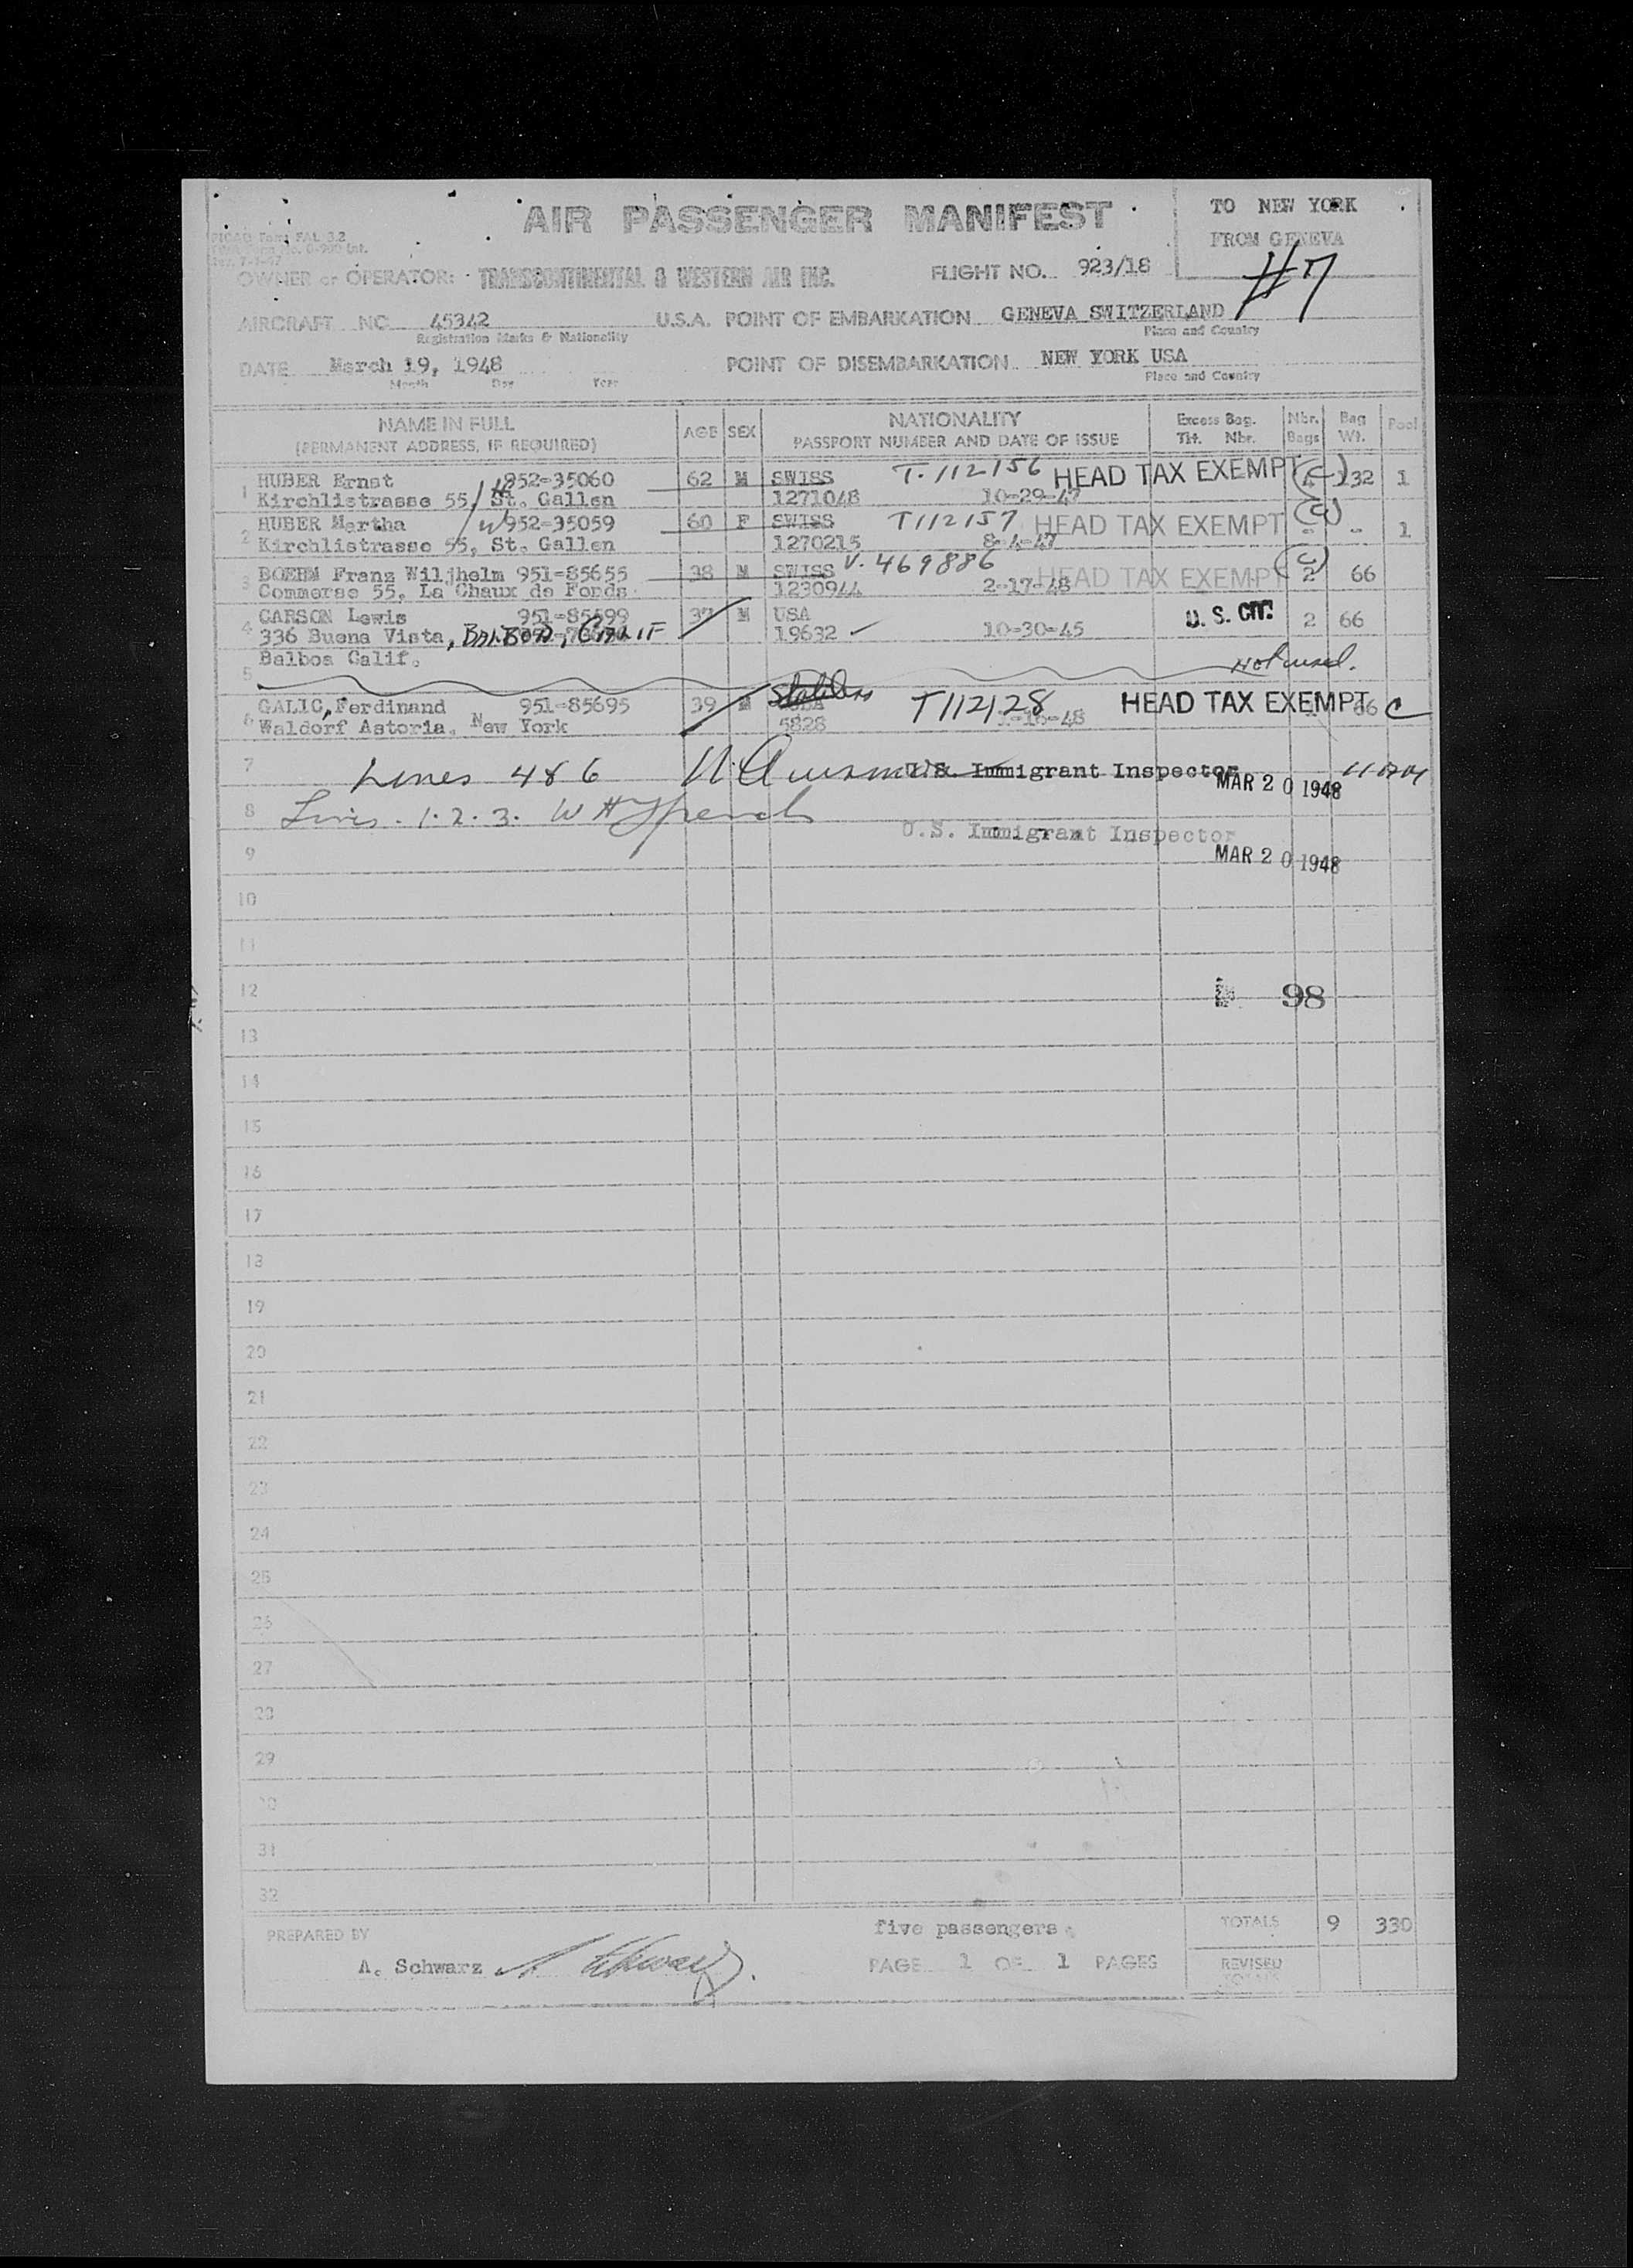 AIR PASSENGER MANIFEST
TO NEW YORK
FROM GENEVA
#7
OWNER or OPERATOR: TRANSCONTINENTAL & WESTERN AIR INC.
FLIGHT NO. 923/18
AIRCRAFT NC 45342
Registration Marks & Nationality
U.S.A. POINT OF EMBARKATION GENEVA SWITZERLAND
Place and Country
DATE March 19, 1948
Month Day Year
POINT OF DISEMBARKATION NEW YORK USA
Place and Country
NAME IN FULL AGE SEX NATIONALITY Excess Bag. Nbr. Bag Pool
(PERMANENT ADDRESS, IF REQUIRED) PASSPORT NUMBER AND DATE OF ISSUE Tkt. Nbr. Bags Wt.
1 HUBER Ernst 952-35060 62 M SWISS T-112156 HEAD TAX EXEMPT 132 1
Kirchlistrasse 55, St. Gallen 1271048 10-29-47
2 HUBER Martha 952-35059 60 F SWISS T112157 HEAD TAX EXEMPT - - 1
Kirchlistrasse 55, St. Gallen 1270215 8-4-47
3 BOEHM Franz Wiljhelm 951-85655 38 M SWISS V. 469886 HEAD TAX EXEMPT 2 66
Commerse 55, La Chaux de Fonds 1230944 2-17-48
4 CARSON Lewis 951-85699 37 M USA U. S. CIT. 2 66
336 Buena Vista, BALBOA, CALIF 19632 ✓ 10-30-45
5 Balboa Calif. Not used.
6 GALIC, Ferdinand 951-85695 39 M Stateless T112128 HEAD TAX EXEMPT 66 C
Waldorf Astoria, New York 5828 -16-48
7 Lines 4 & 6 U.S. Immigrant Inspector MAR 20 1948
8 Lines 1. 2. 3. W H
U.S. Immigrant Inspector
9 MAR 20 1948
10
11
12 98
13
14
15
16
17
18
19
20
21
22
23
24
25
26
27
28
29
30
31
32
PREPARED BY five passengers TOTALS 9 330
A. Schwarz A Schwarz PAGE 1 OF 1 PAGES REVISED
TOTALS